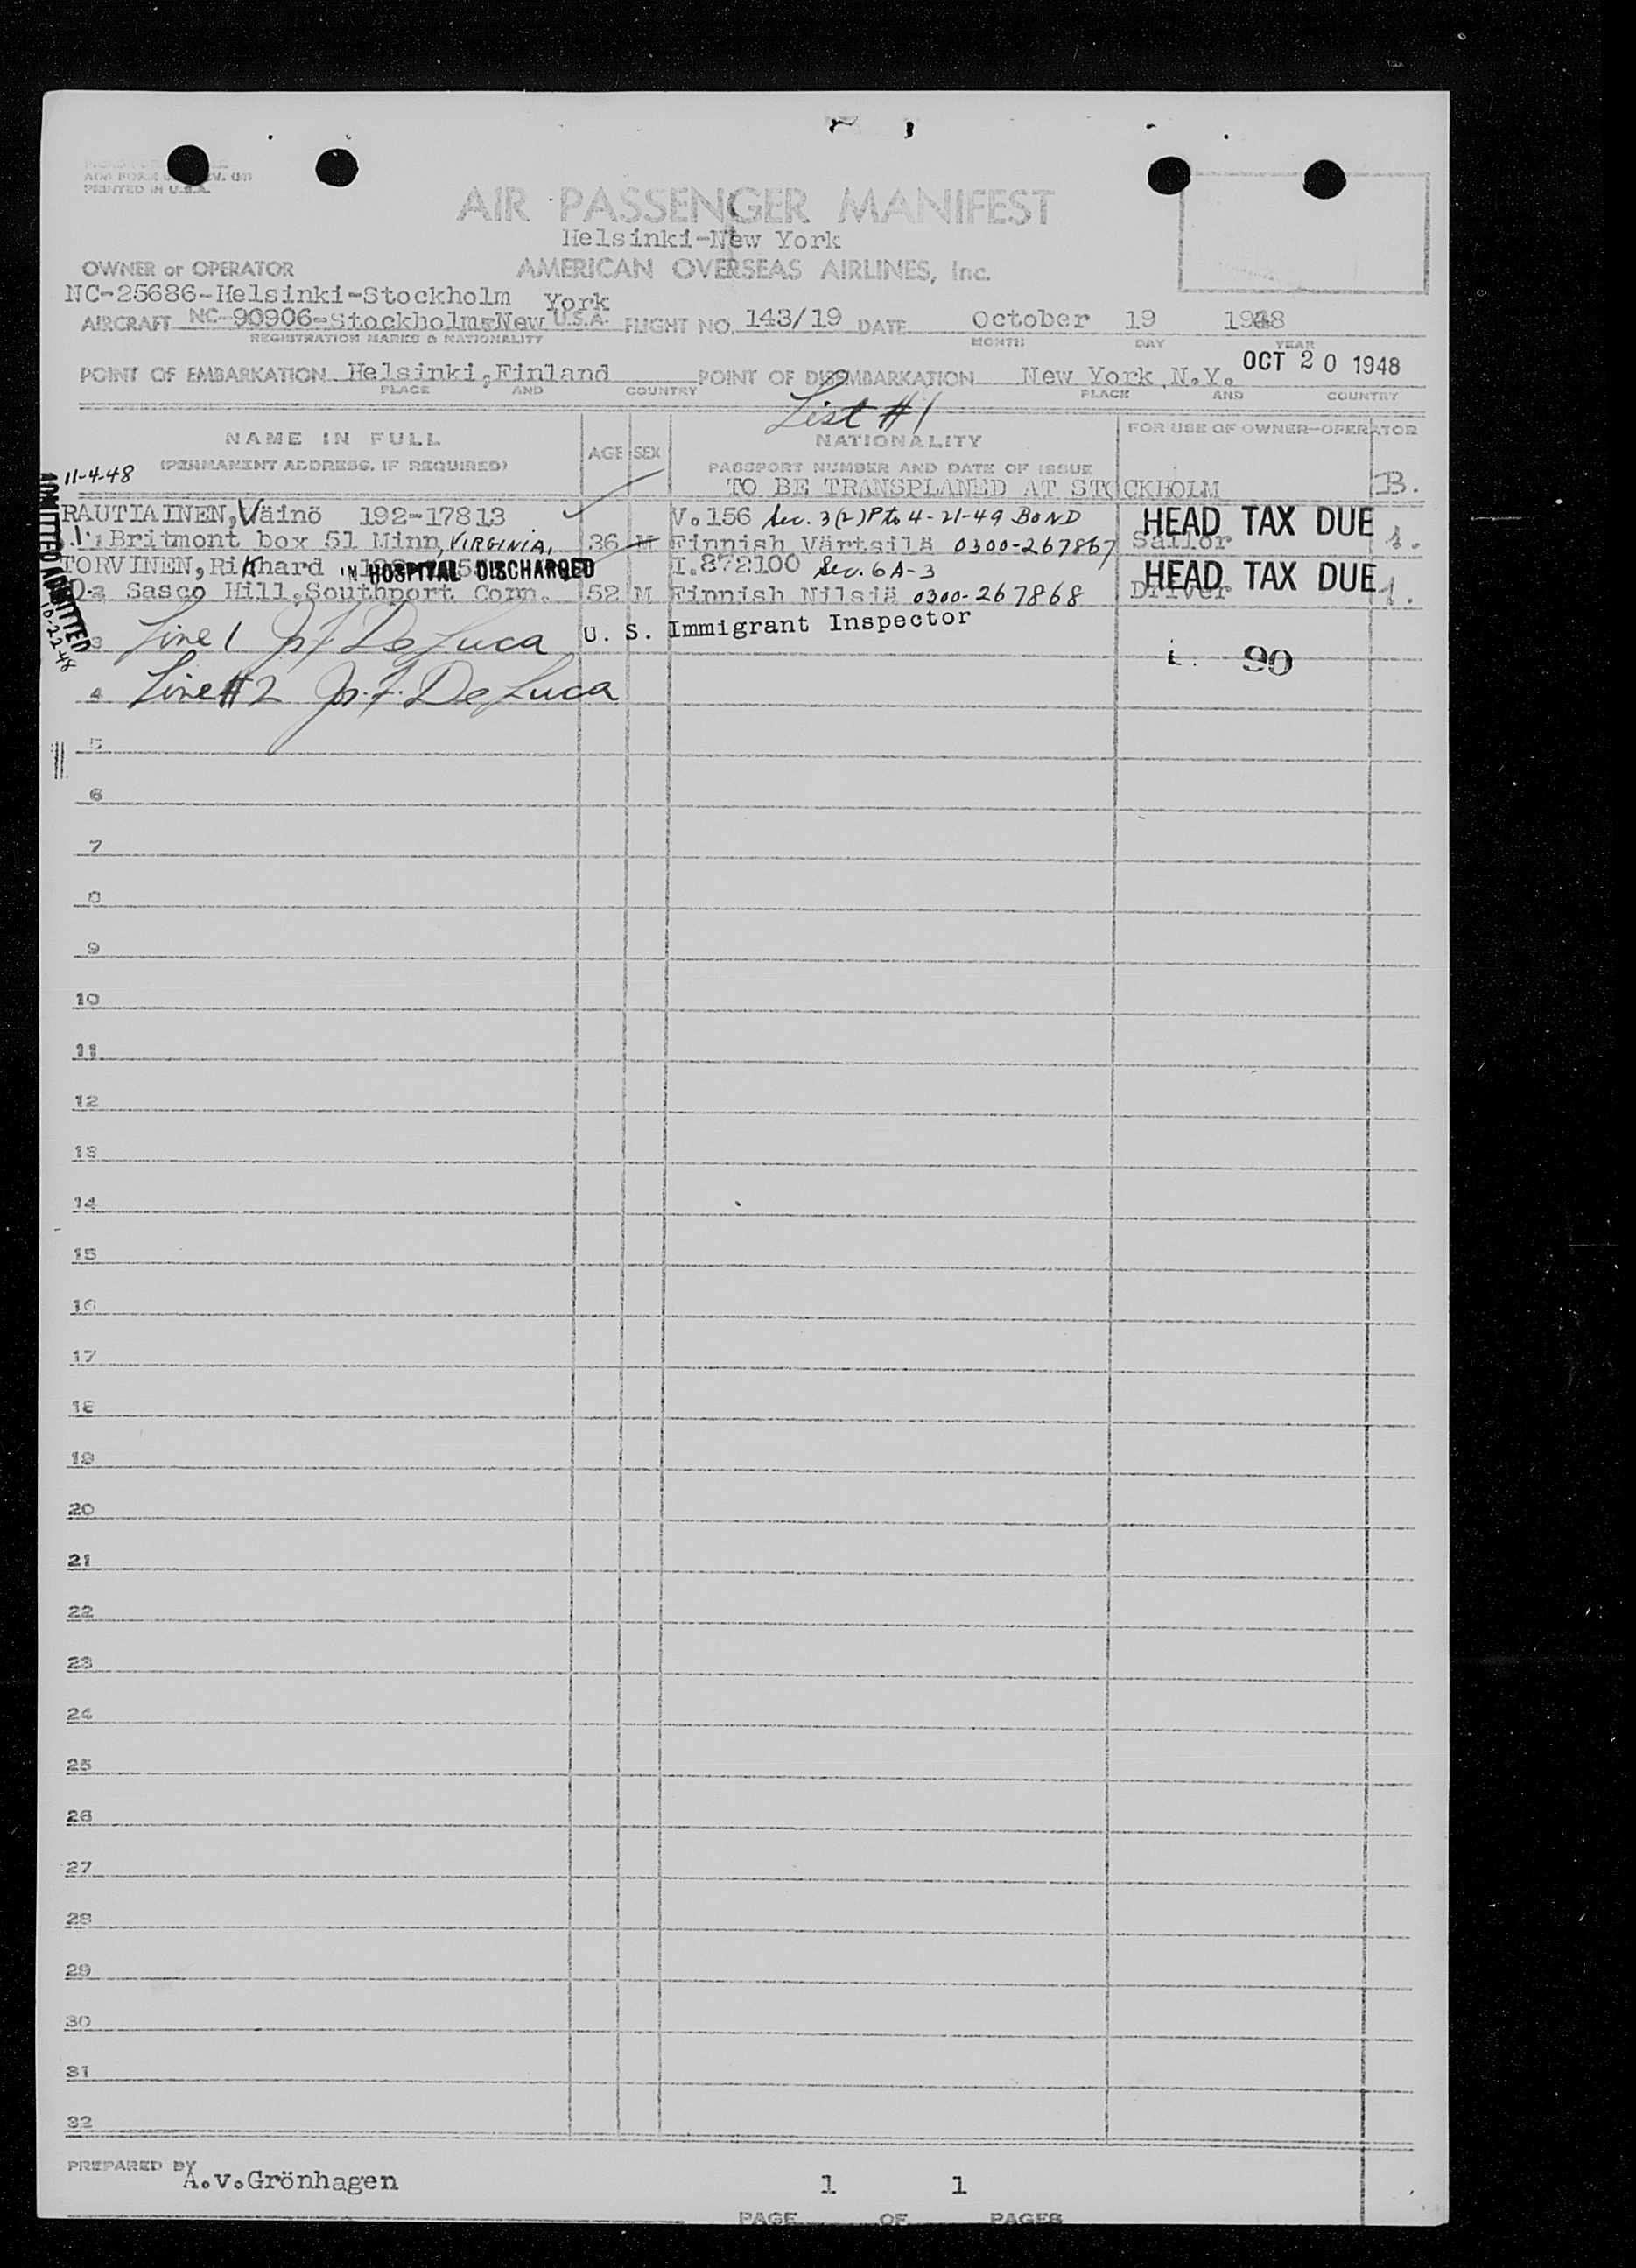 PRINTED IN U.S.A.
AIR PASSENGER MANIFEST
Helsinki-New York
OWNER or OPERATOR AMERICAN OVERSEAS AIRLINES, Inc.
NC-25686-Helsinki-Stockholm York
AIRCRAFT NC-90906-Stockholm-New U.S.A. FLIGHT NO. 143/19 DATE October 19 1948
REGISTRATION MARKS & NATIONALITY MONTH DAY YEAR
OCT 20 1948
POINT OF EMBARKATION Helsinki, Finland POINT OF DISEMBARKATION New York N.Y.
PLACE AND COUNTRY PLACE AND COUNTRY
List #1
NAME IN FULL AGE SEX NATIONALITY FOR USE OF OWNER-OPERATOR
(PERMANENT ADDRESS, IF REQUIRED) PASSPORT NUMBER AND DATE OF ISSUE
11-4-48 TO BE TRANSPLANED AT STOCKHOLM B.
ADMITTED
RAUTIAINEN, Väinö 192-17813 V.156 Sec. 3(2) P to 4-21-49 BOND HEAD TAX DUE
Britmont box 51 Minn, VIRGINIA, 36 M Finnish Värtsilä 0300-267867 Sailor 1.
TORVINEN, Rikhard IN HOSPITAL DISCHARGED T.872100 Sec. 6A-3 HEAD TAX DUE
Sasco Hill, Southport Conn. 52 M Finnish Nilsiä 0300-267868 Driver 1.
ADMITTED
10-22-48
U. S. Immigrant Inspector
3 Line 1 De Luca
90
4 Line #2 De Luca
5
6
7
8
9
10
11
12
13
14
15
16
17
18
19
20
21
22
23
24
25
26
27
28
29
30
31
32
PREPARED BY A.v.Grönhagen
PAGE 1 OF 1 PAGES